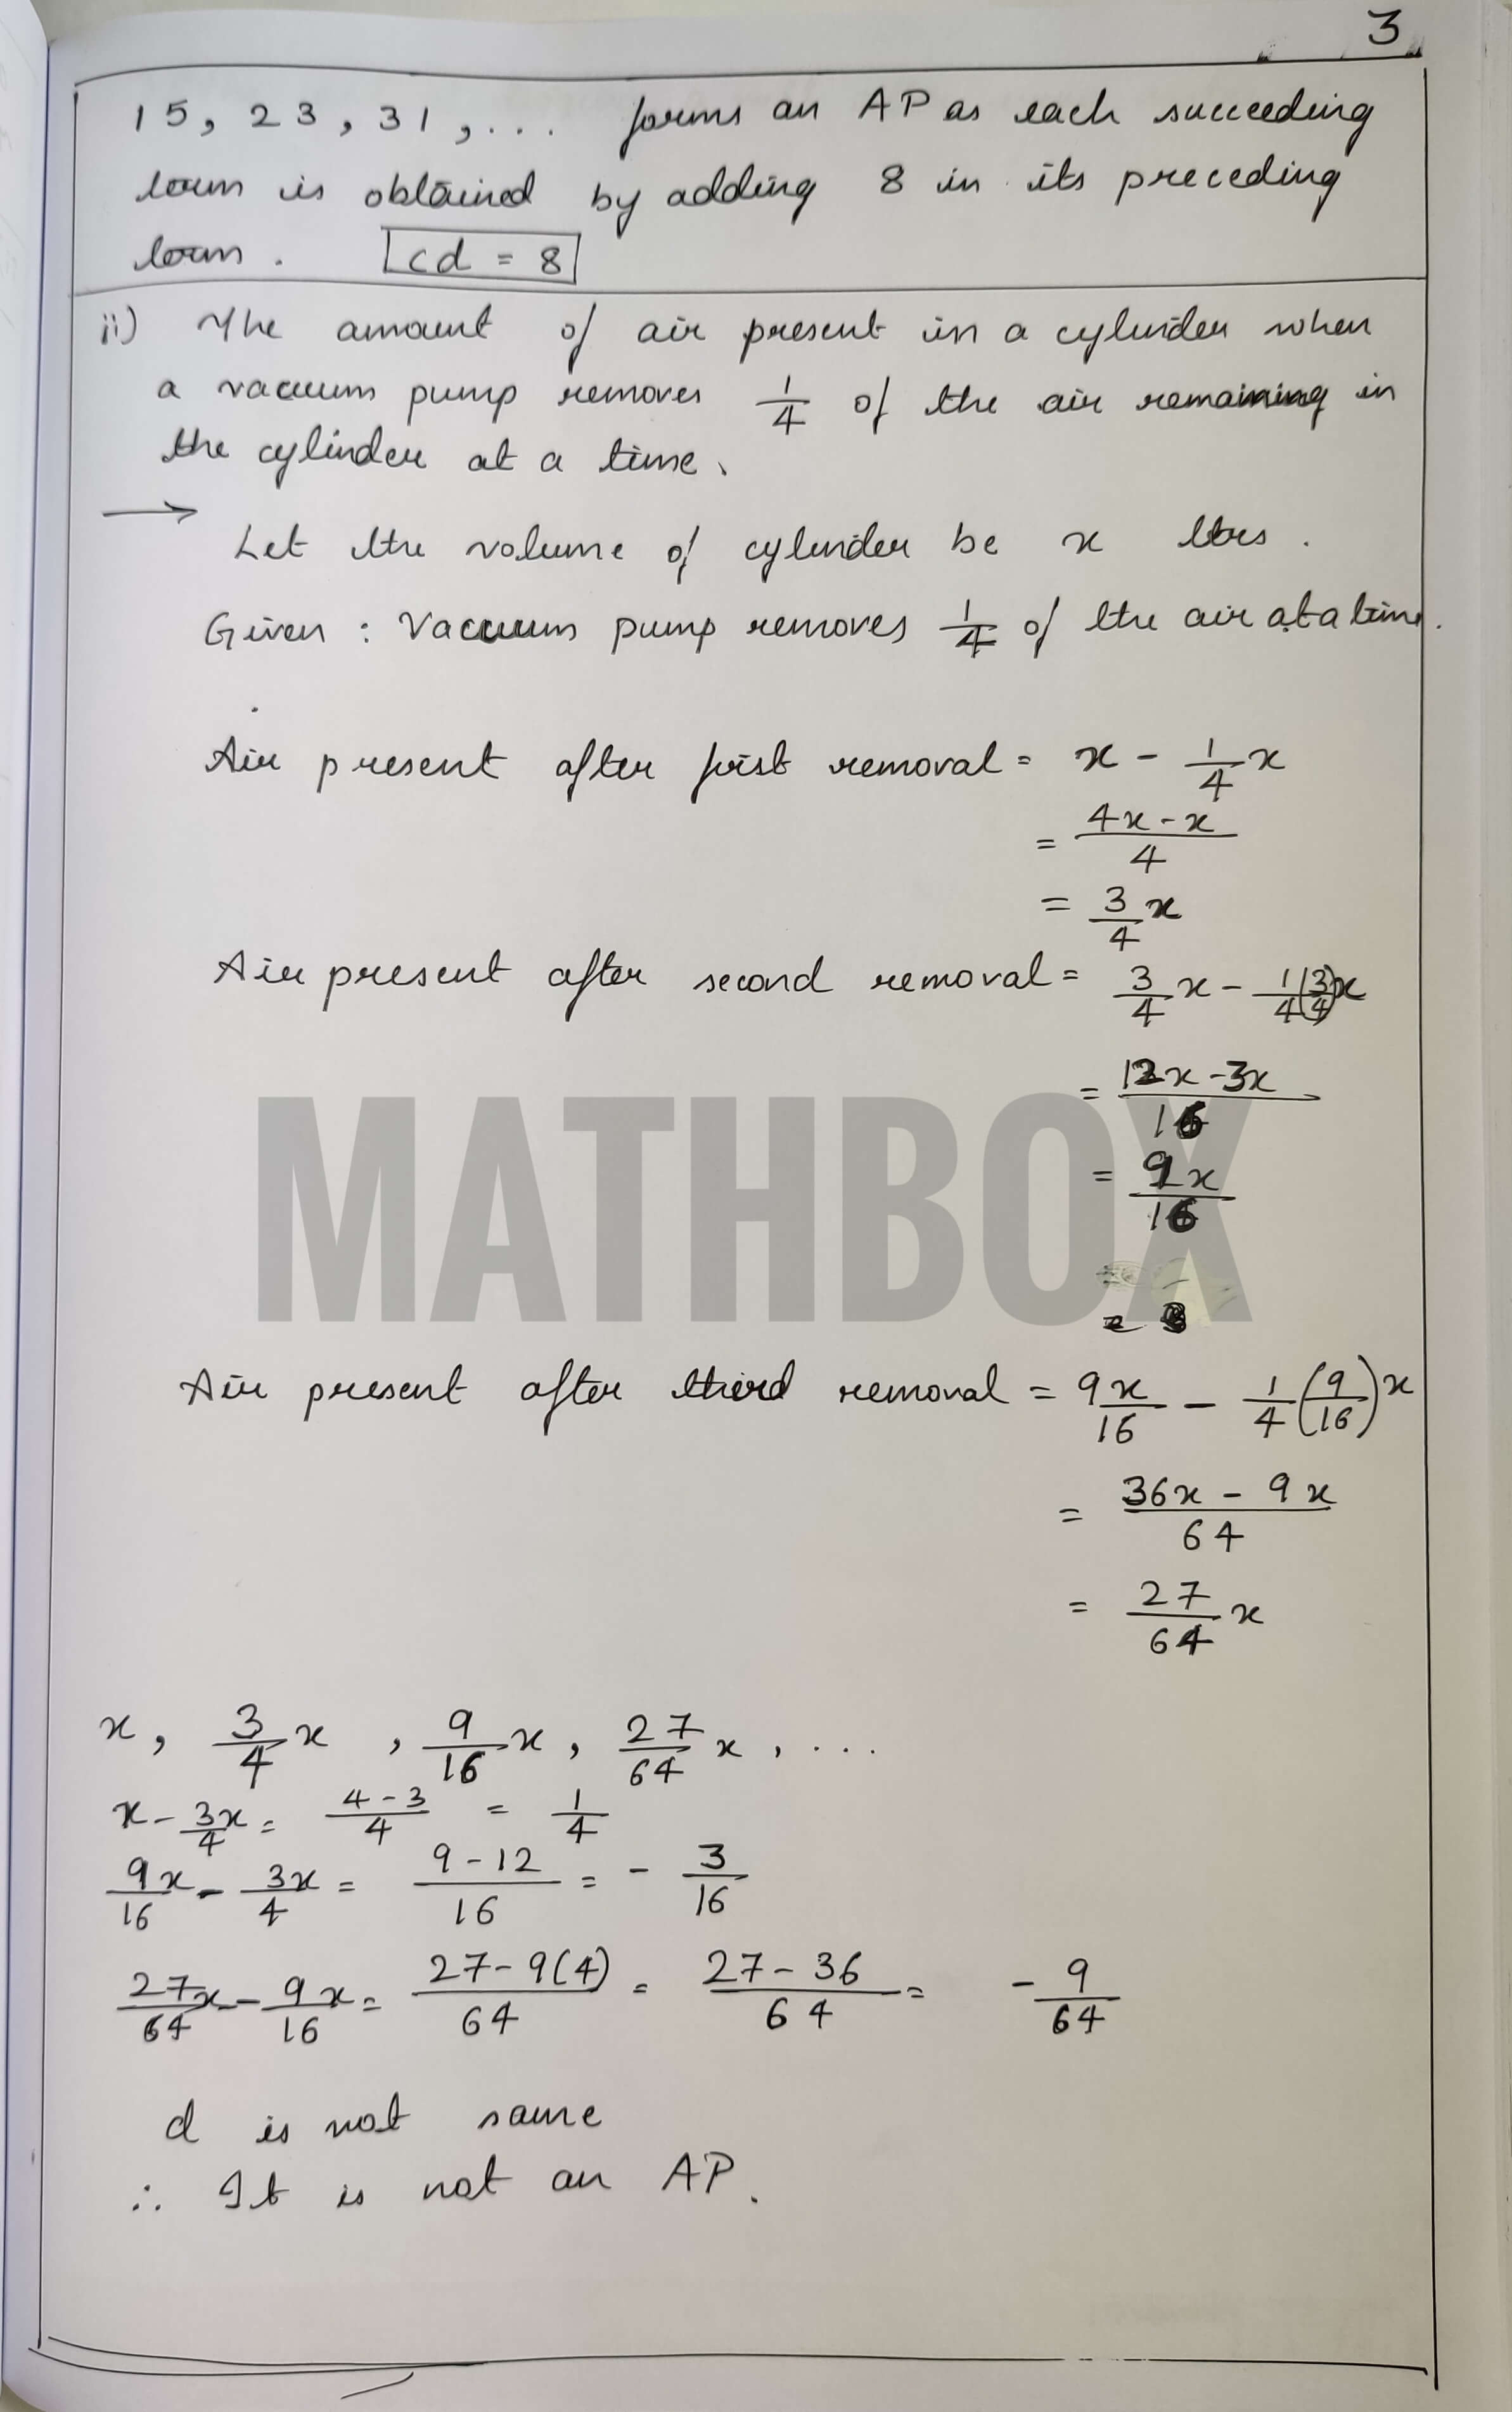 3
15, 23, 31, ... forms an AP as each succeeding
term is obtained by adding 8 in its preceding
term. cd = 8
ii) The amount of air present in a cylinder when
a vacuum pump removes 1/4 of the air remaining in
the cylinder at a time.
→ Let the volume of cylinder be x ltrs.
Given : Vacuum pump removes 1/4 of the air at a time.
Air present after first removal = x - 1/4 x
= (4x - x)/4
= 3/4 x
Air present after second removal = 3/4 x - 1/4 (3/4) x
= (12x - 3x)/16
= 9x/16
MATHBOX
Air present after third removal = 9x/16 - 1/4 (9/16) x
= (36x - 9x)/64
= 27/64 x
x, 3/4 x, 9/16 x, 27/64 x, ...
x - 3x/4 = (4-3)/4 = 1/4
9x/16 - 3x/4 = (9-12)/16 = - 3/16
27x/64 - 9x/16 = (27-9(4))/64 = (27-36)/64 = - 9/64
d is not same
∴ It is not an AP.